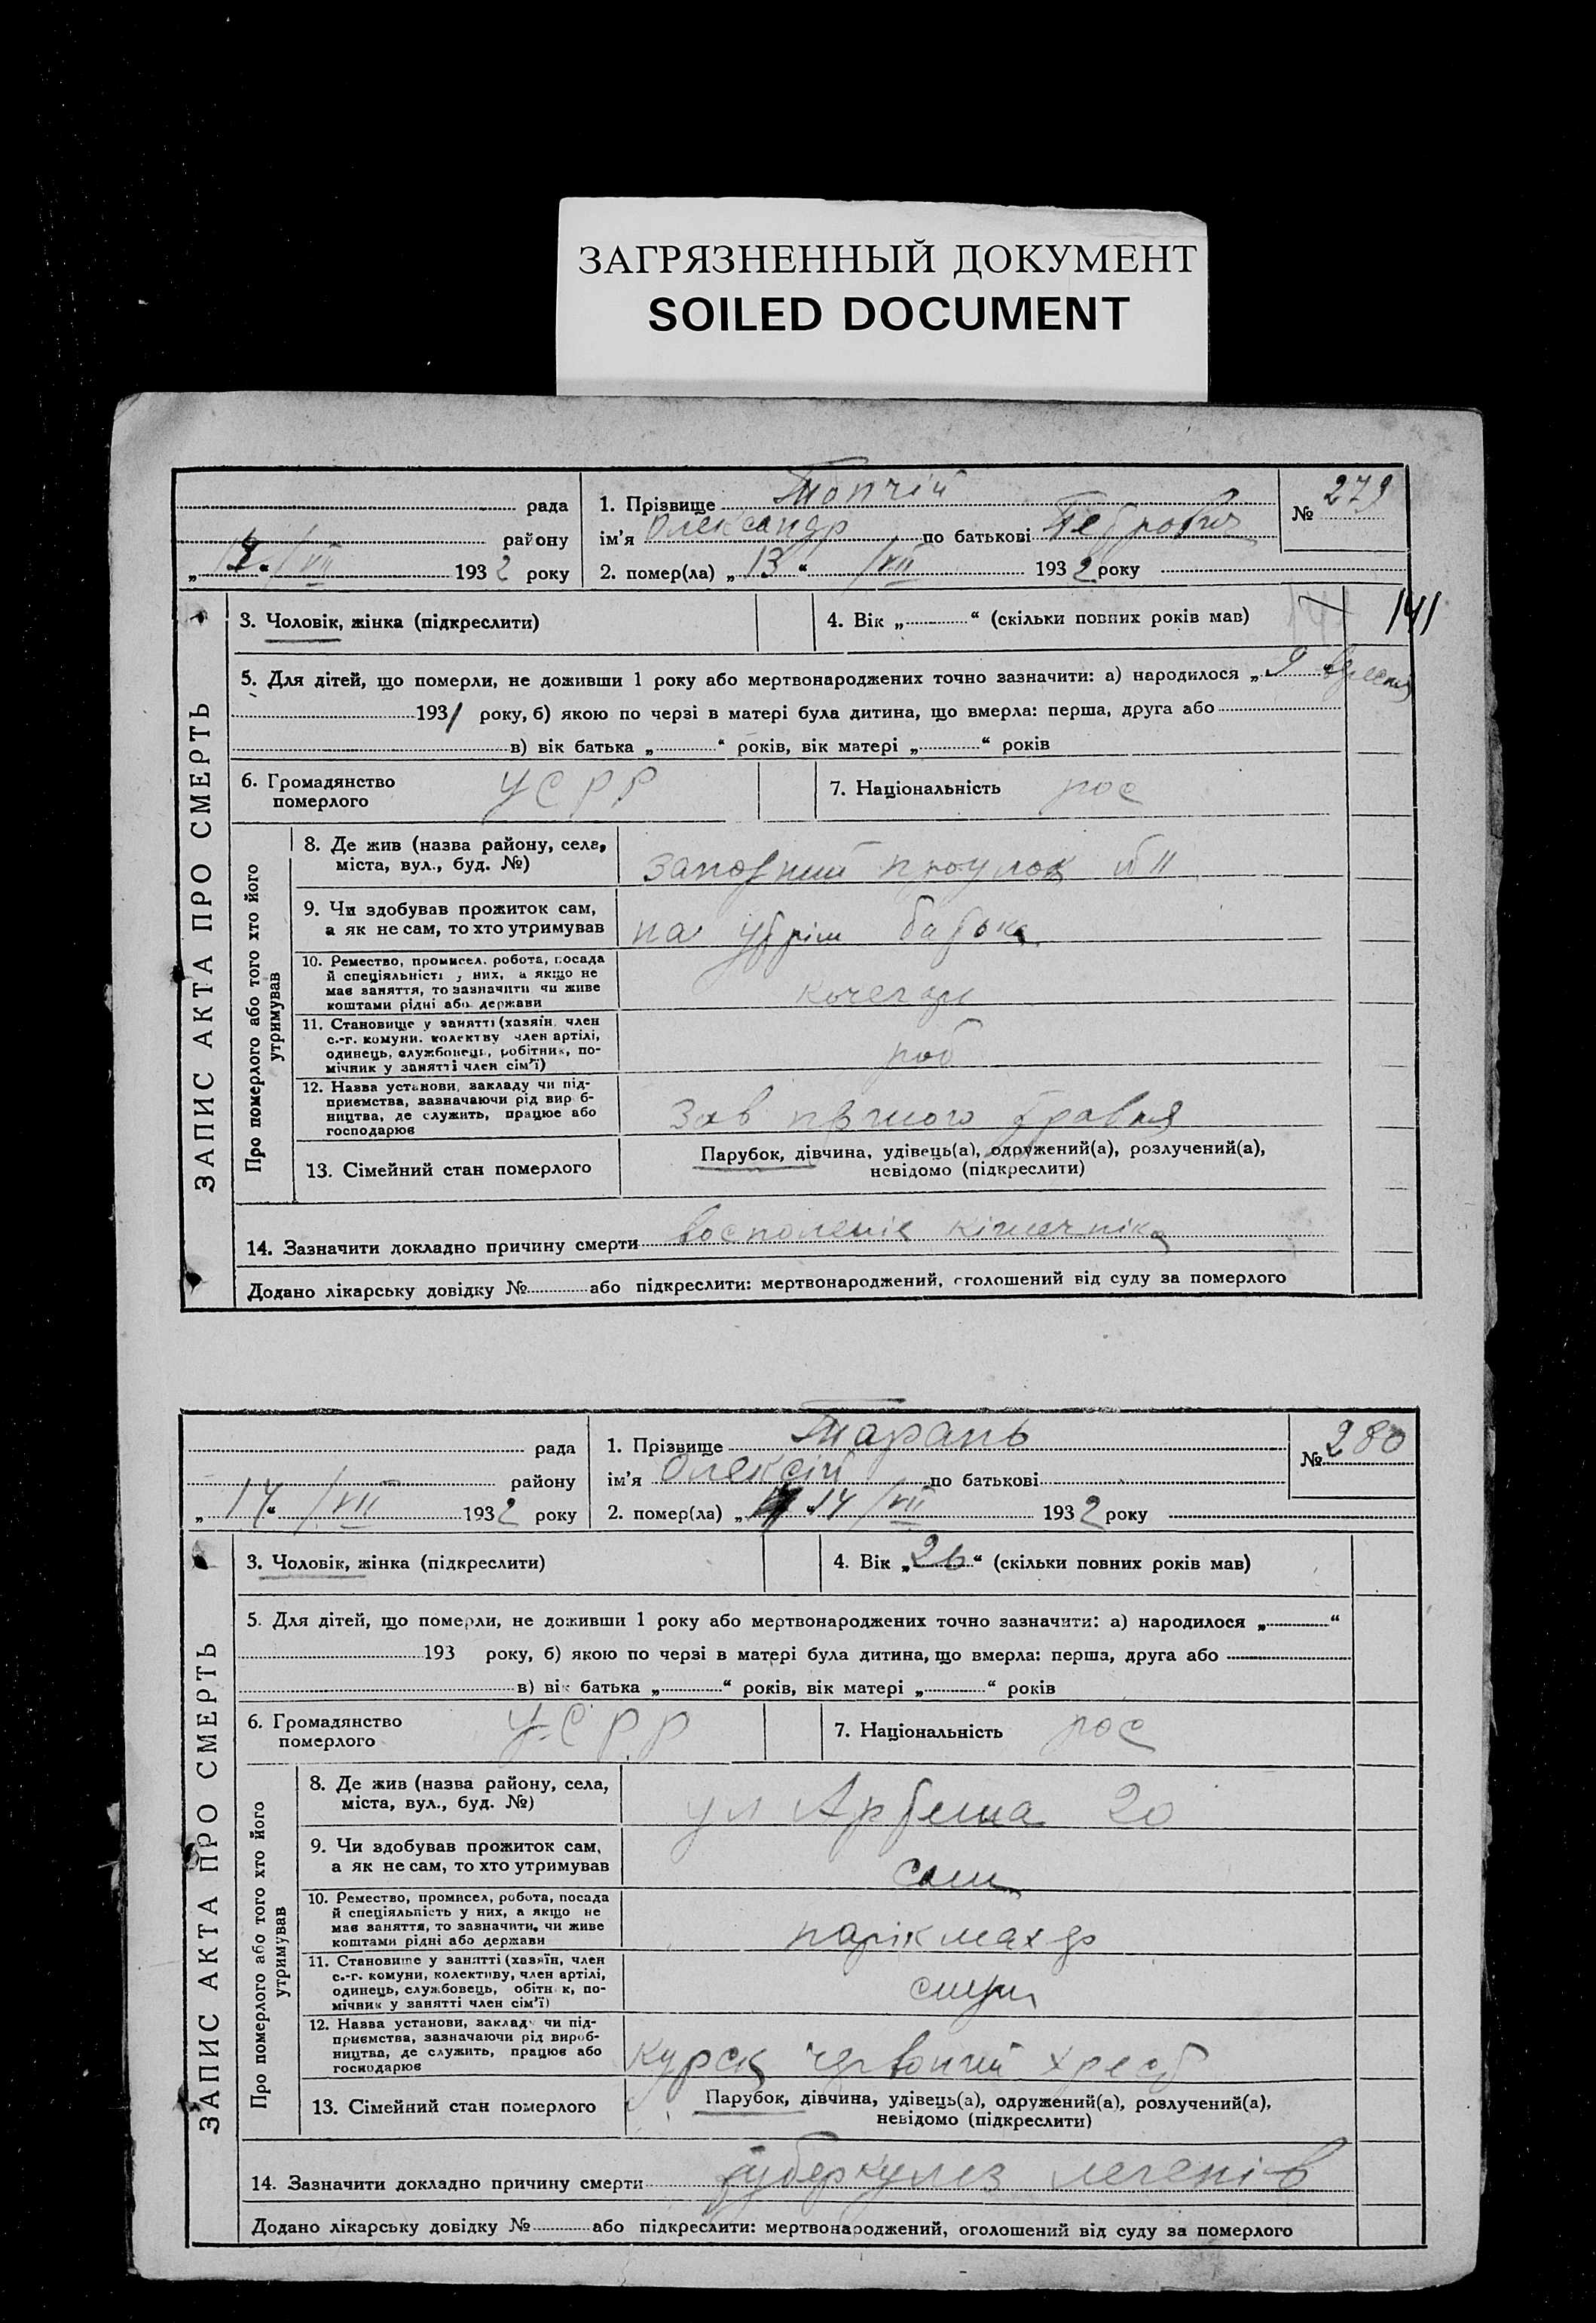 ЗАГРЯЗНЕННЫЙ ДОКУМЕНТ
SOILED DOCUMENT
рада
району
/VII 1932 року
1. Прізвище Топчій
ім'я Олександр по батькові Петрович
2. помер(ла) „13“ /VII 1932 року
№ 279
ЗАПИС АКТА ПРО СМЕРТЬ
3. Чоловік, жінка (підкреслити)
4. Вік „ “ (скільки повних років мав)
141
5. Для дітей, що померли, не доживши 1 року або мертвонароджених точно зазначити: а) народилося „9 вересня
1931 року, б) якою по черзі в матері була дитина, що вмерла: перша, друга або
в) вік батька „ “ років, вік матері „ “ років
6. Громадянство
померлого
УСРР
7. Національність рос
Про померлого або того хто його
утримував
8. Де жив (назва району, села,
міста, вул., буд. №)
проулок 11
9. Чи здобував прожиток сам,
а як не сам, то хто утримував
на утрім батька
10. Ремество, промисел, робота, посада
й спеціяльність у них, а якщо не
має заняття, то зазначити чи живе
коштами рідні або держави
кочегар
11. Становище у занятті (хазяїн, член
с.-г. комуни, колективу, член артілі,
одинець, службовець, робітник, по-
мічник у занятті член сім'ї)
роб
12. Назва установи, закладу чи під-
приємства, зазначаючи рід вироб-
ництва, де служить, працює або
господарює
Зав першого травня
13. Сімейний стан померлого
Парубок, дівчина, удівець(а), одружений(а), розлучений(а),
невідомо (підкреслити)
14. Зазначити докладно причину смерти восполеніє кішечніка
Додано лікарську довідку № або підкреслити: мертвонароджений, оголошений від суду за померлого
рада
району
„14“ /VII 1932 року
1. Прізвище Тарань
ім'я Олексій по батькові
2. помер(ла) „ 14 /VII 1932 року
№ 280
ЗАПИС АКТА ПРО СМЕРТЬ
3. Чоловік, жінка (підкреслити)
4. Вік „26“ (скільки повних років мав)
5. Для дітей, що померли, не доживши 1 року або мертвонароджених точно зазначити: а) народилося „ “
193 року, б) якою по черзі в матері була дитина, що вмерла: перша, друга або
в) вік батька „ “ років, вік матері „ “ років
6. Громадянство
померлого
УСРР
7. Національність рос
Про померлого або того хто його
утримував
8. Де жив (назва району, села,
міста, вул., буд. №)
ул Артема 20
9. Чи здобував прожиток сам,
а як не сам, то хто утримував
сам
10. Ремество, промисел, робота, посада
й спеціяльність у них, а якщо не
має заняття, то зазначити, чи живе
коштами рідні або держави
парікмахер
11. Становище у занятті (хазяїн, член
с.-г. комуни, колективу, член артілі,
одинець, службовець, робітник, по-
мічник у занятті член сім'ї)
служ
12. Назва установи, закладу чи під-
приємства, зазначаючи рід вироб-
ництва, де служить, працює або
господарює
Курск червоний хрест
13. Сімейний стан померлого
Парубок, дівчина, удівець(а), одружений(а), розлучений(а),
невідомо (підкреслити)
14. Зазначити докладно причину смерти туберкулез легенів
Додано лікарську довідку № або підкреслити: мертвонароджений, оголошений від суду за померлого